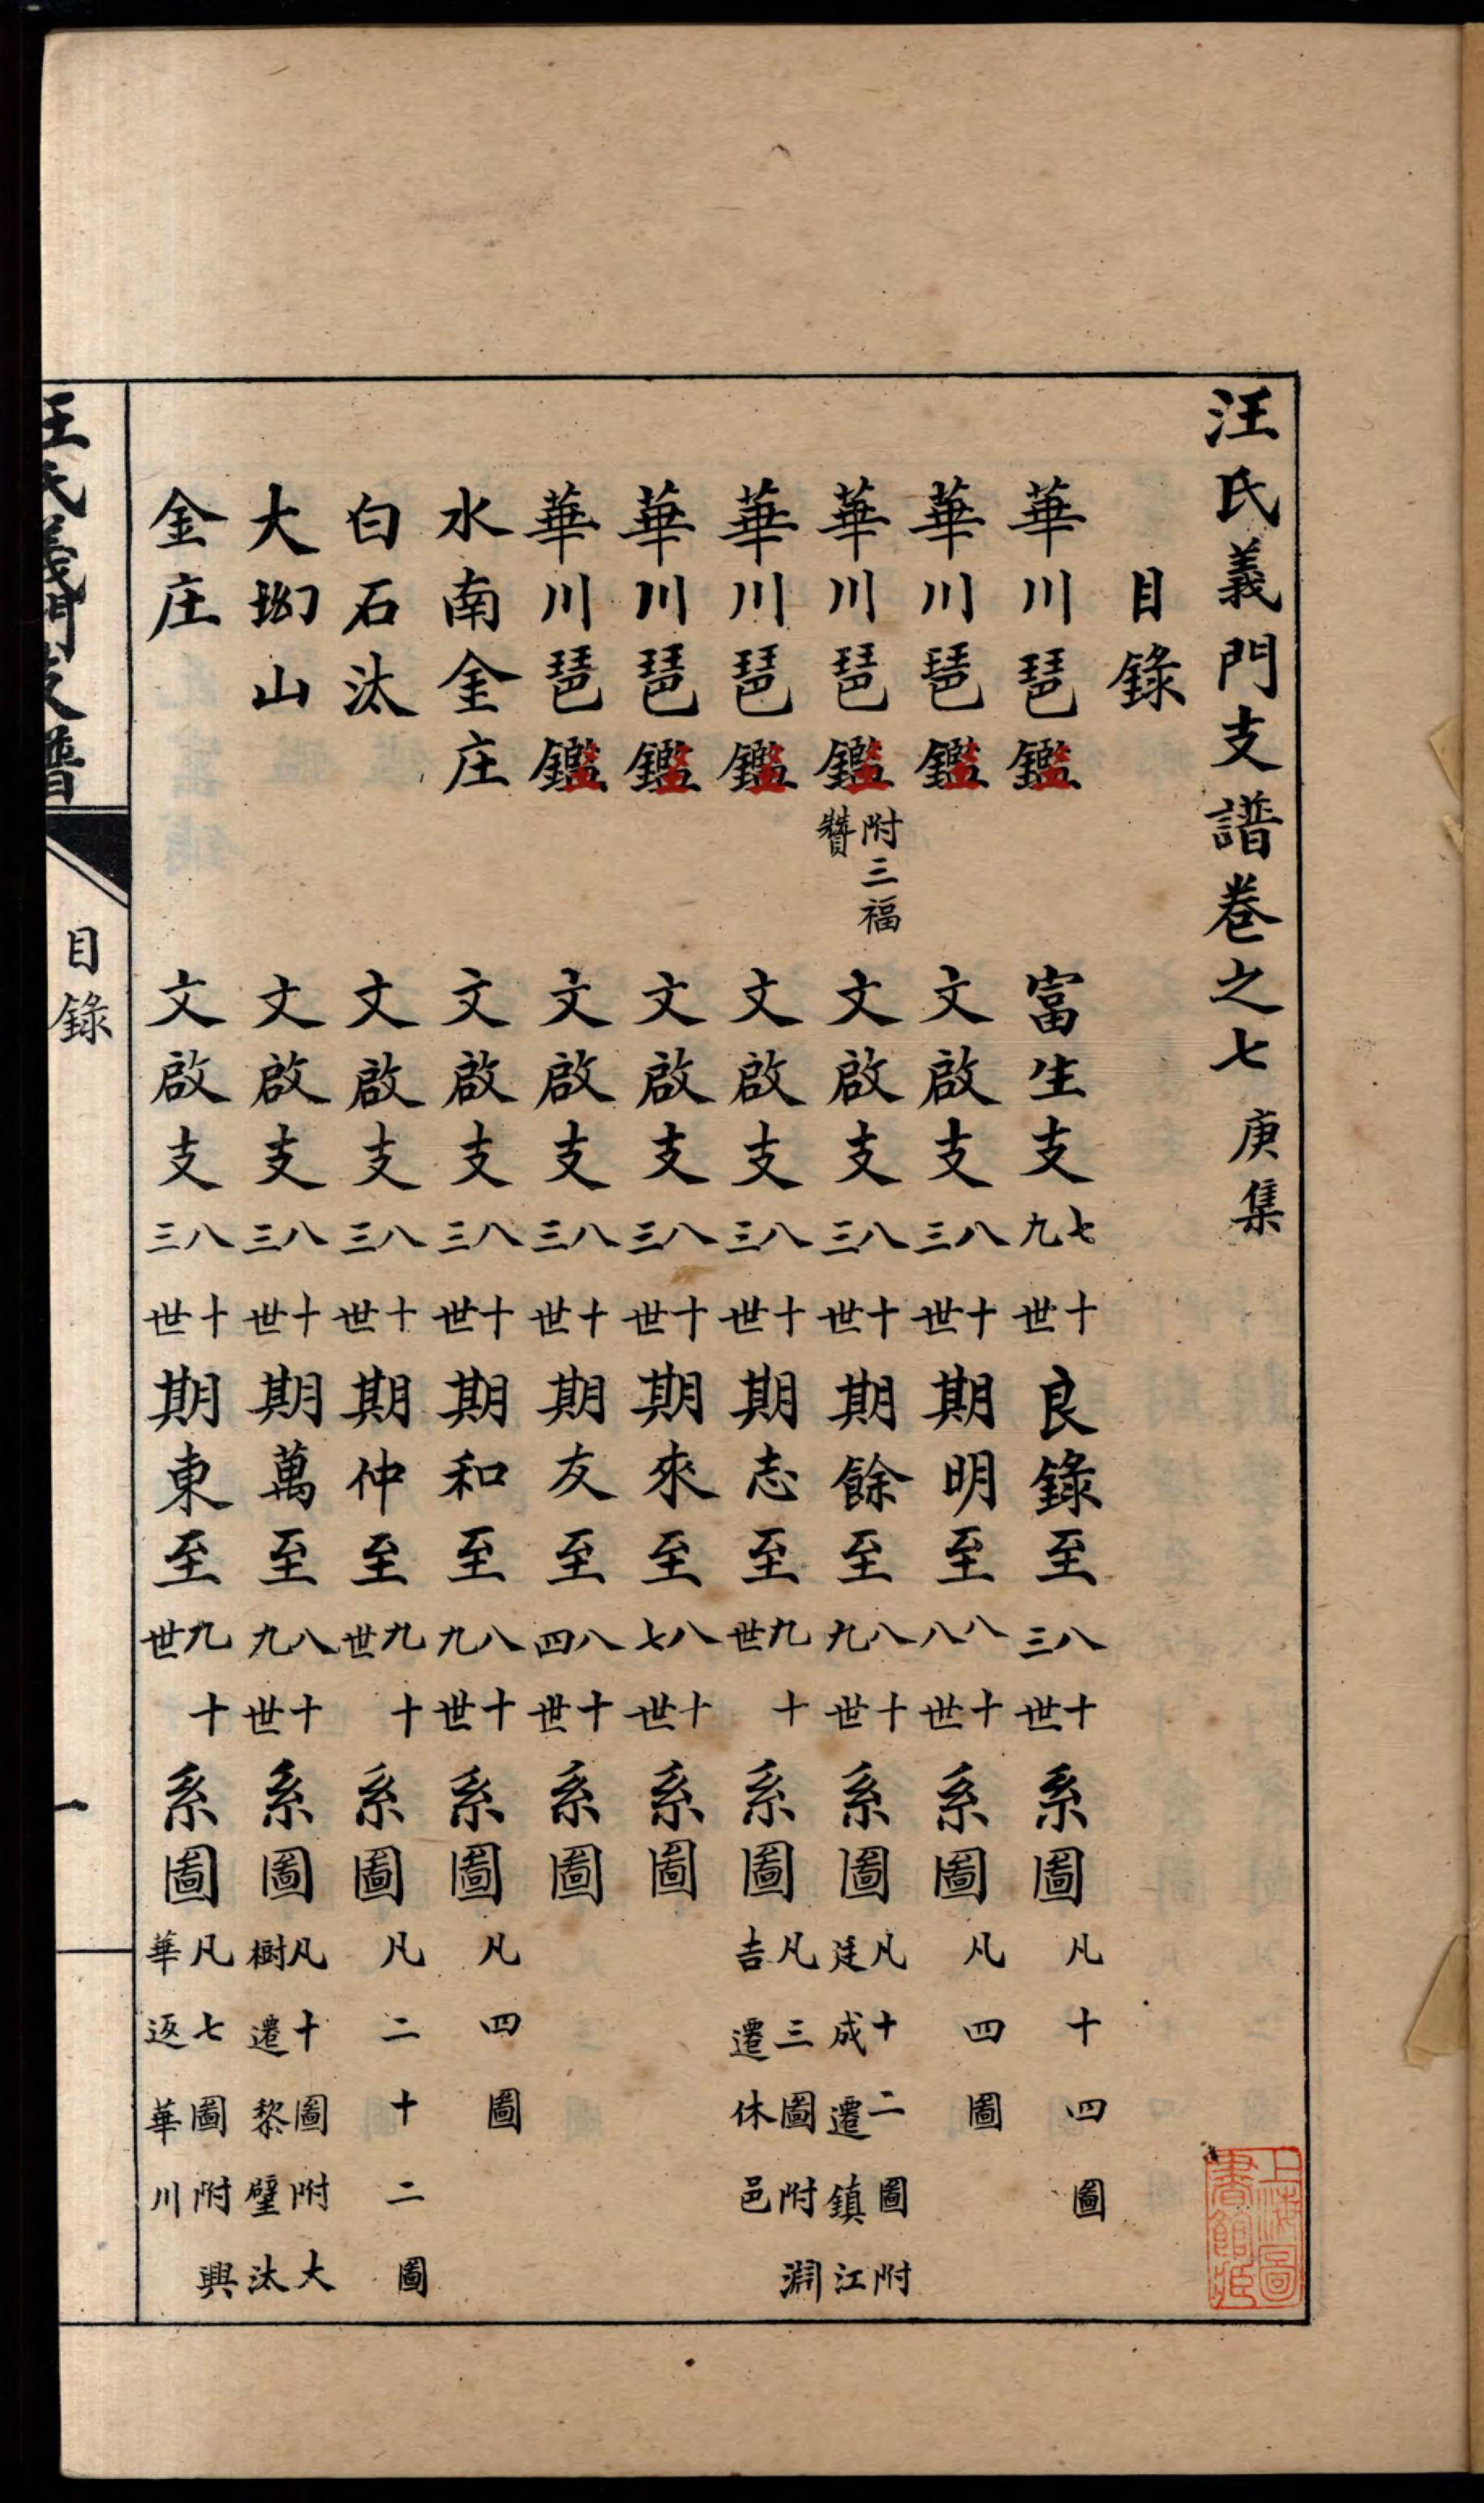 汪氏義門支譜卷之七 庚集
目錄
華川琶鑑 富生支七十九世良錄至八十三世系圖凡十四圖
華川琶鑑 文啟支八十三世期明至八十八世系圖凡四圖
華川琶鑑附三福贊 文啟支八十三世期餘至八十九世系圖凡十二圖附廷成遷鎮江
華川琶鑑 文啟支八十三世期志至九十世系圖凡三圖附淵吉遷休邑
華川琶鑑 文啟支八十三世期來至八十七世系圖
華川琶鑑 文啟支八十三世期友至八十四世系圖
水南金庄 文啟支八十三世期和至八十九世系圖凡四圖
白石汰 文啟支八十三世期仲至九十世系圖凡二十二圖
大坳山 文啟支八十三世期萬至八十九世系圖凡十圖附大樹遷黎壁汰
金庄 文啟支八十三世期東至九十世系圖凡七圖附興華返華川
汪氏義門支譜
目錄
一
上海圖書館藏